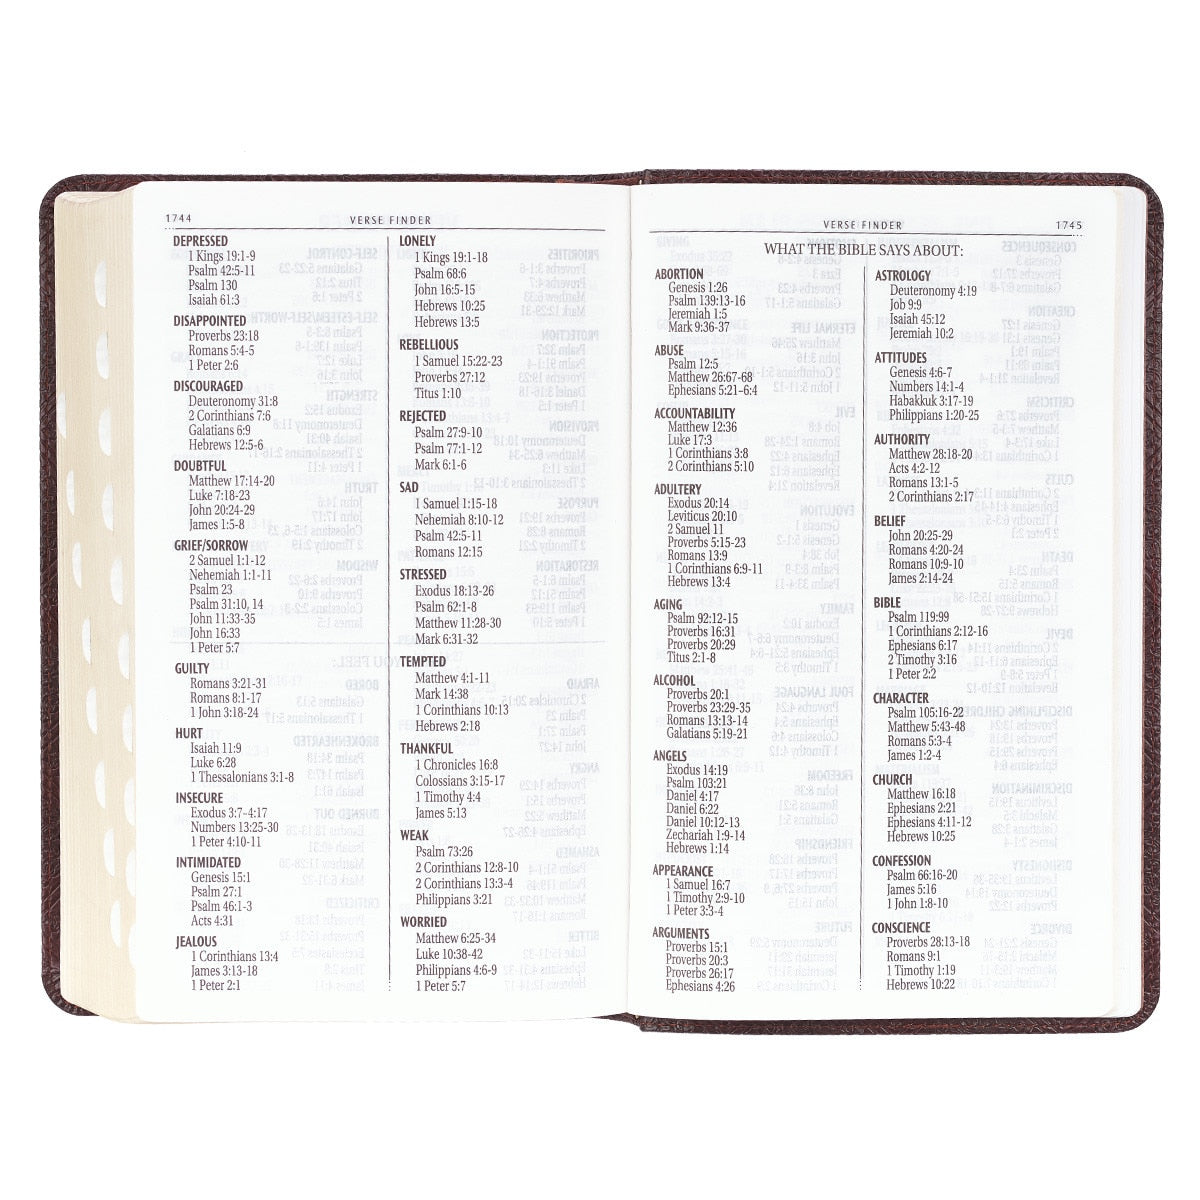 1744
VERSE FINDER
DEPRESSED
1 Kings 19:1-9
Psalm 42:5-11
Psalm 130
Isaiah 61:3
DISAPPOINTED
Proverbs 23:18
Romans 5:4-5
1 Peter 2:6
DISCOURAGED
Deuteronomy 31:8
2 Corinthians 7:6
Galatians 6:9
Hebrews 12:5-6
DOUBTFUL
Matthew 17:14-20
Luke 7:18-23
John 20:24-29
James 1:5-8
GRIEF/SORROW
2 Samuel 1:1-12
Nehemiah 1:1-11
Psalm 23
Psalm 31:10, 14
John 11:33-35
John 16:33
1 Peter 5:7
GUILTY
Romans 3:21-31
Romans 8:1-17
1 John 3:18-24
HURT
Isaiah 11:9
Luke 6:28
1 Thessalonians 3:1-8
INSECURE
Exodus 3:7–4:17
Numbers 13:25-30
1 Peter 4:10-11
INTIMIDATED
Genesis 15:1
Psalm 27:1
Psalm 46:1-3
Acts 4:31
JEALOUS
1 Corinthians 13:4
James 3:13-18
1 Peter 2:1
LONELY
1 Kings 19:1-18
Psalm 68:6
John 16:5-15
Hebrews 10:25
Hebrews 13:5
REBELLIOUS
1 Samuel 15:22-23
Proverbs 27:12
Titus 1:10
REJECTED
Psalm 27:9-10
Psalm 77:1-12
Mark 6:1-6
SAD
1 Samuel 1:15-18
Nehemiah 8:10-12
Psalm 42:5-11
Romans 12:15
STRESSED
Exodus 18:13-26
Psalm 62:1-8
Matthew 11:28-30
Mark 6:31-32
TEMPTED
Matthew 4:1-11
Mark 14:38
1 Corinthians 10:13
Hebrews 2:18
THANKFUL
1 Chronicles 16:8
Colossians 3:15-17
1 Timothy 4:4
James 5:13
WEAK
Psalm 73:26
2 Corinthians 12:8-10
2 Corinthians 13:3-4
Philippians 3:21
WORRIED
Matthew 6:25-34
Luke 10:38-42
Philippians 4:6-9
1 Peter 5:7
VERSE FINDER
1745
WHAT THE BIBLE SAYS ABOUT:
ABORTION
Genesis 1:26
Psalm 139:13-16
Jeremiah 1:5
Mark 9:36-37
ABUSE
Psalm 12:5
Matthew 26:67-68
Ephesians 5:21–6:4
ACCOUNTABILITY
Matthew 12:36
Luke 17:3
1 Corinthians 3:8
2 Corinthians 5:10
ADULTERY
Exodus 20:14
Leviticus 20:10
2 Samuel 11
Proverbs 5:15-23
Romans 13:9
1 Corinthians 6:9-11
Hebrews 13:4
AGING
Psalm 92:12-15
Proverbs 16:31
Proverbs 20:29
Titus 2:1-8
ALCOHOL
Proverbs 20:1
Proverbs 23:29-35
Romans 13:13-14
Galatians 5:19-21
ANGELS
Exodus 14:19
Psalm 103:21
Daniel 4:17
Daniel 6:22
Daniel 10:12-13
Zechariah 1:9-14
Hebrews 1:14
APPEARANCE
1 Samuel 16:7
1 Timothy 2:9-10
1 Peter 3:3-4
ARGUMENTS
Proverbs 15:1
Proverbs 20:3
Proverbs 26:17
Ephesians 4:26
ASTROLOGY
Deuteronomy 4:19
Job 9:9
Isaiah 45:12
Jeremiah 10:2
ATTITUDES
Genesis 4:6-7
Numbers 14:1-4
Habakkuk 3:17-19
Philippians 1:20-25
AUTHORITY
Matthew 28:18-20
Acts 4:2-12
Romans 13:1-5
2 Corinthians 2:17
BELIEF
John 20:25-29
Romans 4:20-24
Romans 10:9-10
James 2:14-24
BIBLE
Psalm 119:99
1 Corinthians 2:12-16
Ephesians 6:17
2 Timothy 3:16
1 Peter 2:2
CHARACTER
Psalm 105:16-22
Matthew 5:43-48
Romans 5:3-4
James 1:2-4
CHURCH
Matthew 16:18
Ephesians 2:21
Ephesians 4:11-12
Hebrews 10:25
CONFESSION
Psalm 66:16-20
James 5:16
1 John 1:8-10
CONSCIENCE
Proverbs 28:13-18
Romans 9:1
1 Timothy 1:19
Hebrews 10:22